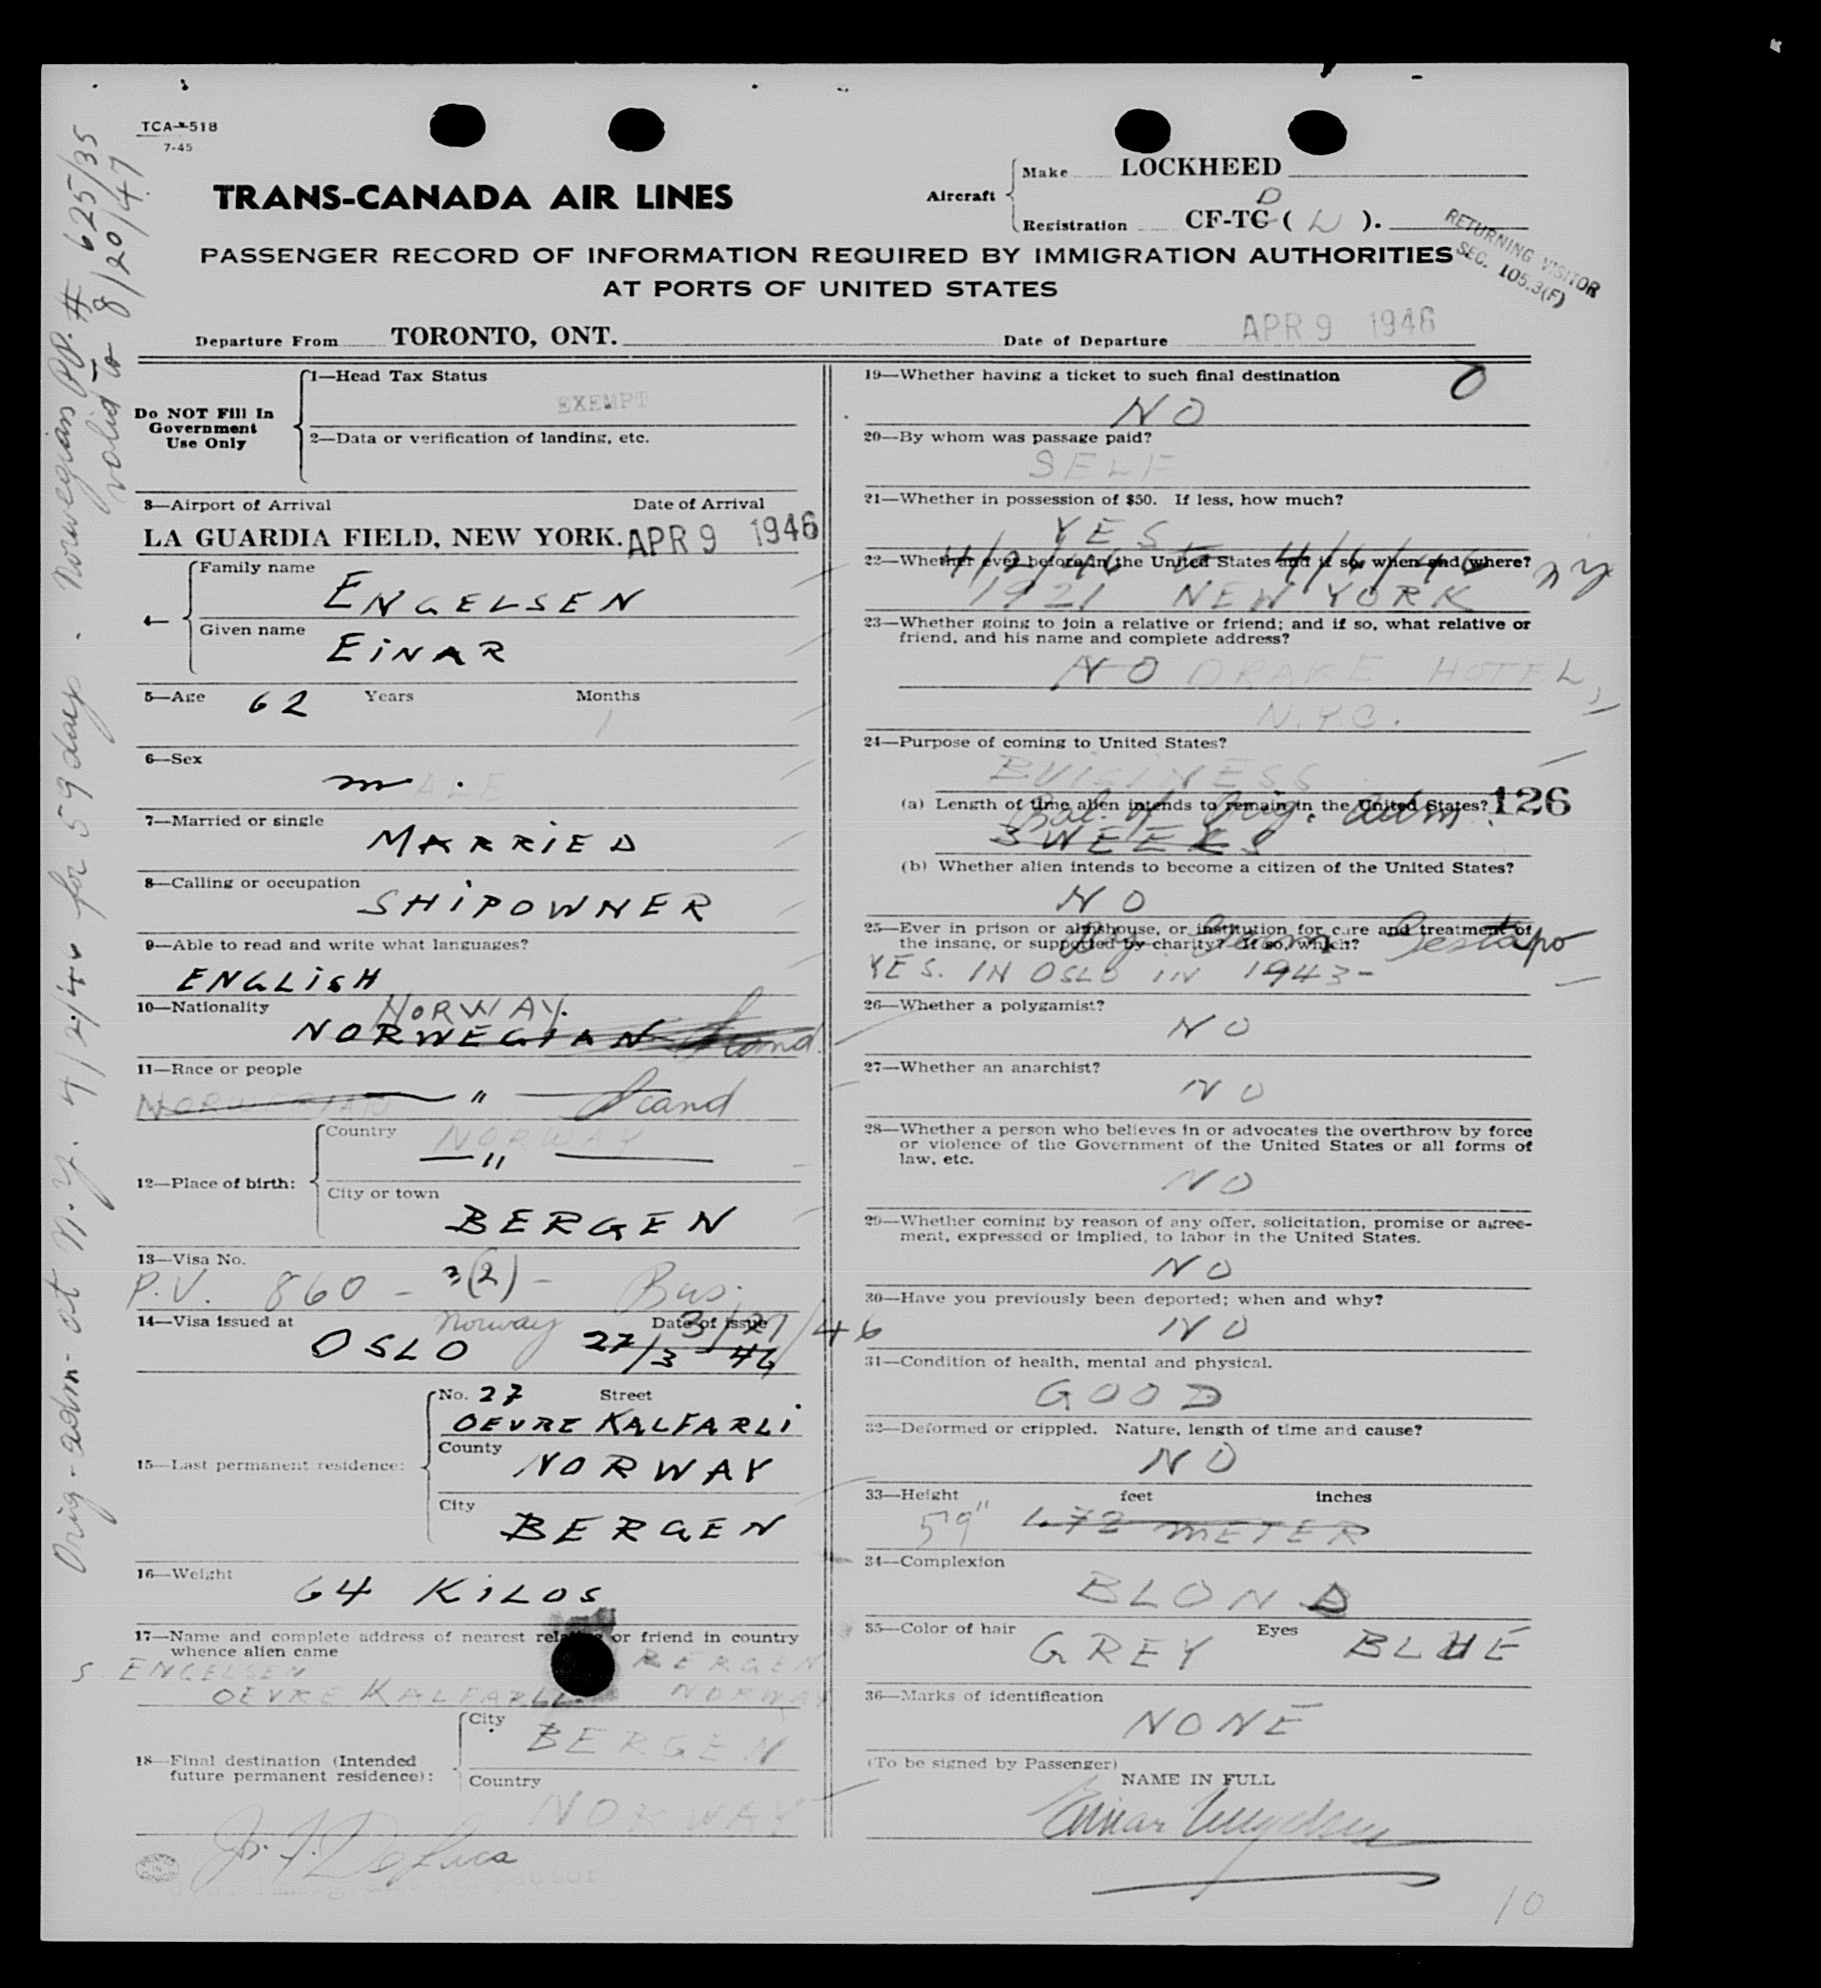 TCA-518
7-45
TRANS-CANADA AIR LINES
Aircraft
Make LOCKHEED
Registration CF-TC D ( W ).
RETURNING VISITOR
SEC. 105.3(F)
PASSENGER RECORD OF INFORMATION REQUIRED BY IMMIGRATION AUTHORITIES
AT PORTS OF UNITED STATES
Departure From TORONTO, ONT.
Date of Departure APR 9 1946
Norwegian PP. # 625/35
valid to 8/20/47
Orig-adm- at N.Y. 4/2/46 for 59 days.
Do NOT Fill In
Government
Use Only
1—Head Tax Status
EXEMPT
2—Data or verification of landing, etc.
3—Airport of Arrival Date of Arrival
LA GUARDIA FIELD, NEW YORK. APR 9 1946
4
Family name
ENGELSEN
Given name
EINAR
5—Age 62 Years Months
1
6—Sex
MALE
7—Married or single
MARRIED
8—Calling or occupation
SHIPOWNER
9—Able to read and write what languages?
ENGLISH
10—Nationality NORWAY.
NORWEGIAN Scand.
11—Race or people
NORWEGIAN " Scand
12—Place of birth:
Country NORWAY
"
City or town
BERGEN
13—Visa No.
P.V. 860 - 3(2) - Bus.
14—Visa issued at Norway Date of issue 3/27/46
OSLO 27/3 46
15—Last permanent residence:
No. 27 Street
OEVRE KALFARLI
County
NORWAY
City
BERGEN
16—Weight
64 KILOS
17—Name and complete address of nearest relative or friend in country
whence alien came
S. ENGELSEN BERGEN
OEVRE KALFARLI NORWAY
18—Final destination (Intended
future permanent residence):
City
BERGEN
Country
NORWAY
J. F. DeLuca
19—Whether having a ticket to such final destination 0
NO
20—By whom was passage paid?
SELF
21—Whether in possession of $50. If less, how much?
YES
4/2/46 to 4/6/46 NY
22—Whether ever before in the United States and if so, when and where?
1921 NEW YORK
23—Whether going to join a relative or friend; and if so, what relative or
friend, and his name and complete address?
NO DRAKE HOTEL,
N.Y.C.
24—Purpose of coming to United States?
BUISINESS
(a) Length of time alien intends to remain in the United States? 126
Bal. of Orig. Adm.
3 WEEKS
(b) Whether alien intends to become a citizen of the United States?
NO
25—Ever in prison or almshouse, or institution for care and treatment of
the insane, or supported by charity? If so, which?
By Germ. Gestapo
YES. IN OSLO IN 1943-
26—Whether a polygamist?
NO
27—Whether an anarchist?
NO
28—Whether a person who believes in or advocates the overthrow by force
or violence of the Government of the United States or all forms of
law, etc.
NO
29—Whether coming by reason of any offer, solicitation, promise or agree-
ment, expressed or implied, to labor in the United States.
NO
30—Have you previously been deported; when and why?
NO
31—Condition of health, mental and physical.
GOOD
32—Deformed or crippled. Nature, length of time and cause?
NO
33—Height feet inches
5'9" 1.72 METER
34—Complexion
BLOND
35—Color of hair GREY Eyes BLUE
36—Marks of identification
NONE
(To be signed by Passenger)
NAME IN FULL
Einar Engelsen
10